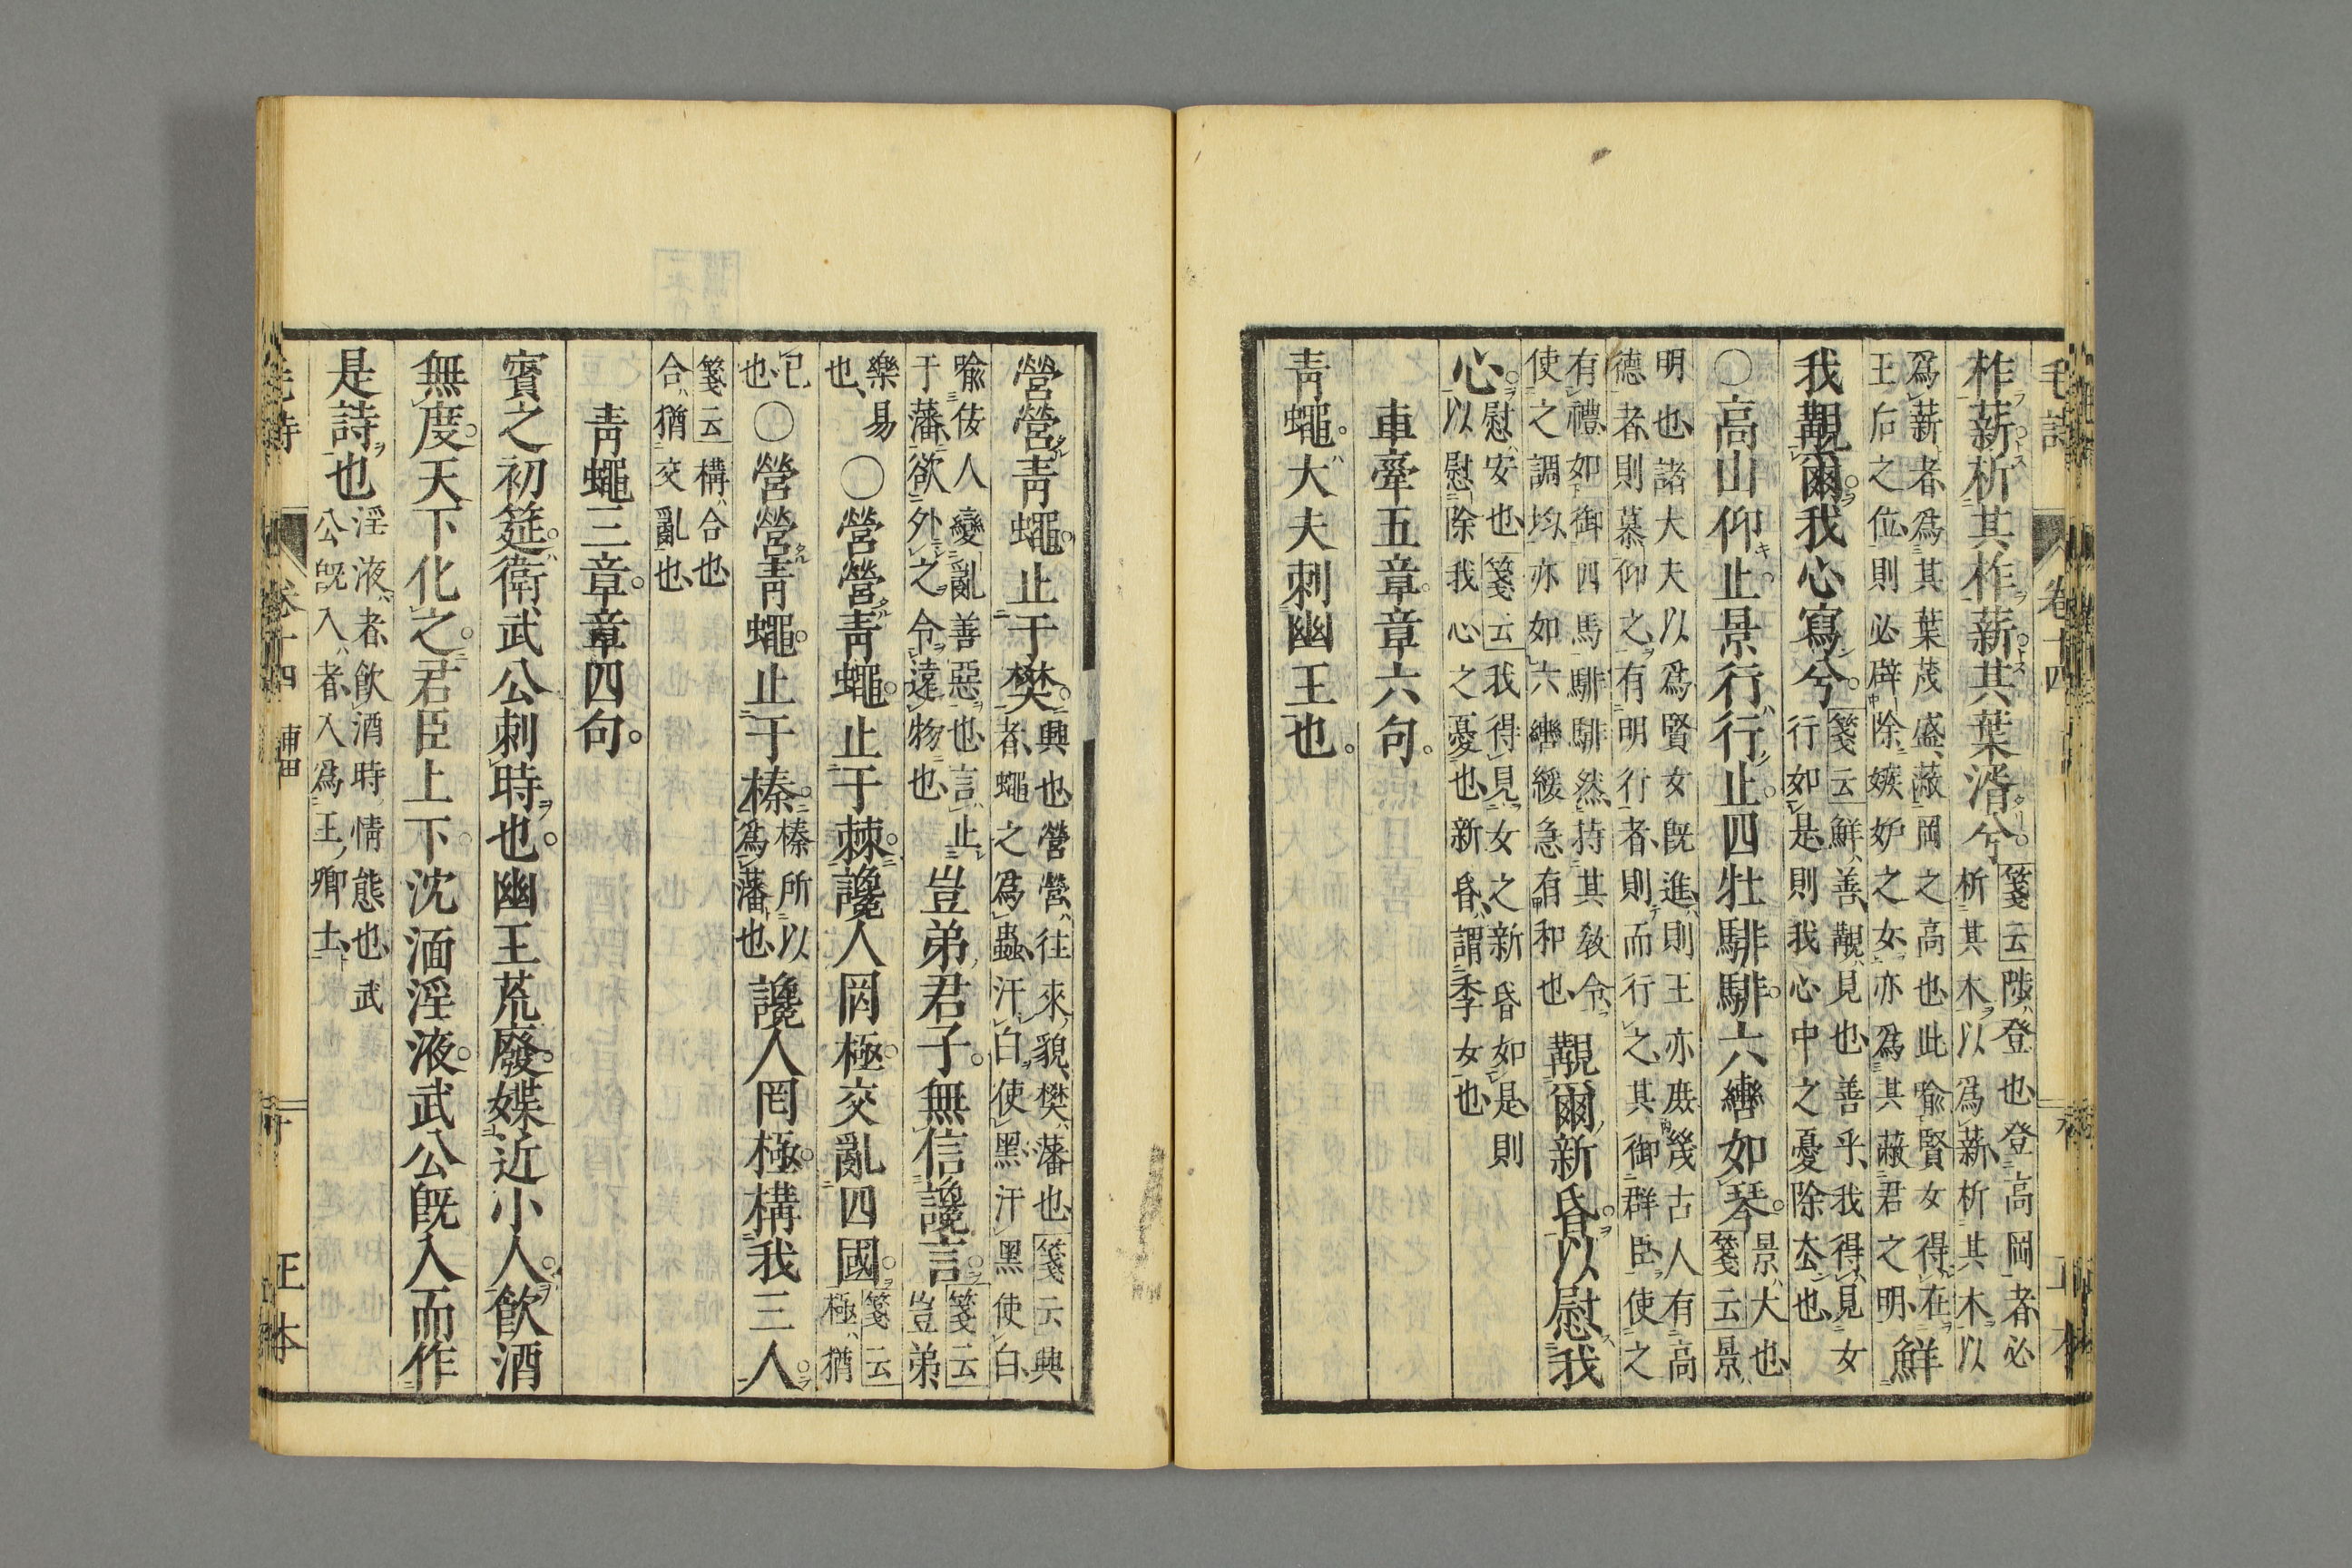 柞薪析其柞薪其葉湑兮箋云陟登也登高岡者必
析其木以爲薪析其木以
爲薪者爲其葉茂盛蔽岡之高也此喩賢女得在
王后之位則必辟除嫉妒之女亦爲其蔽君之明鮮
我覯爾我心寫兮箋云鮮善覯見也善乎我得見女
行如是則我心中之憂除去也
〇高山仰止景行行止四牡騑騑六轡如琴景大也
箋云景
明也諸大夫以爲賢女旣進則王亦庶幾古人有高
德者則慕仰之有明行者則而行之其御群臣使之
有禮如御四馬騑騑然持其敎令
使之調均亦如六轡緩急有和也覯爾新昏以慰我
心慰安也箋云我得見女之新昏如是則
以慰除我心之憂也新昏謂季女也
車舝五章章六句
靑蠅大夫刺幽王也
營營靑蠅止于樊興也營營往來貌樊藩也箋云興
者蠅之爲蟲汗白使黑汗黑使白
喩佞人變亂善惡也言止
于藩欲外之令遠物也豈弟君子無信讒言箋云
豈弟
樂易
也〇營營靑蠅止于棘讒人罔極交亂四國箋云
極猶
已
也〇營營靑蠅止于榛榛所以
爲藩也讒人罔極構我二人
箋云構合也
合猶交亂也
靑蠅三章章四句
賓之初筵衛武公刺時也幽王荒廢媟近小人飮酒
無度天下化之君臣上下沈湎淫液武公旣入而作
是詩也淫液者飮酒時情態也武
公旣入者入爲王卿士
毛詩
卷十四
甫田